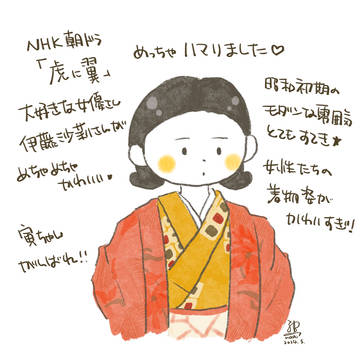 NHK朝ドラ
「虎に翼」
めっちゃ ハマりました♡
大好きな女優さん
伊藤沙莉さんが
めちゃめちゃ
かわいい♥
寅ちゃん
がんばれ!!
昭和初期の
モダンな雰囲気
とてもすてき★
女性たちの
着物姿が
かわいすぎ!
2024.5.